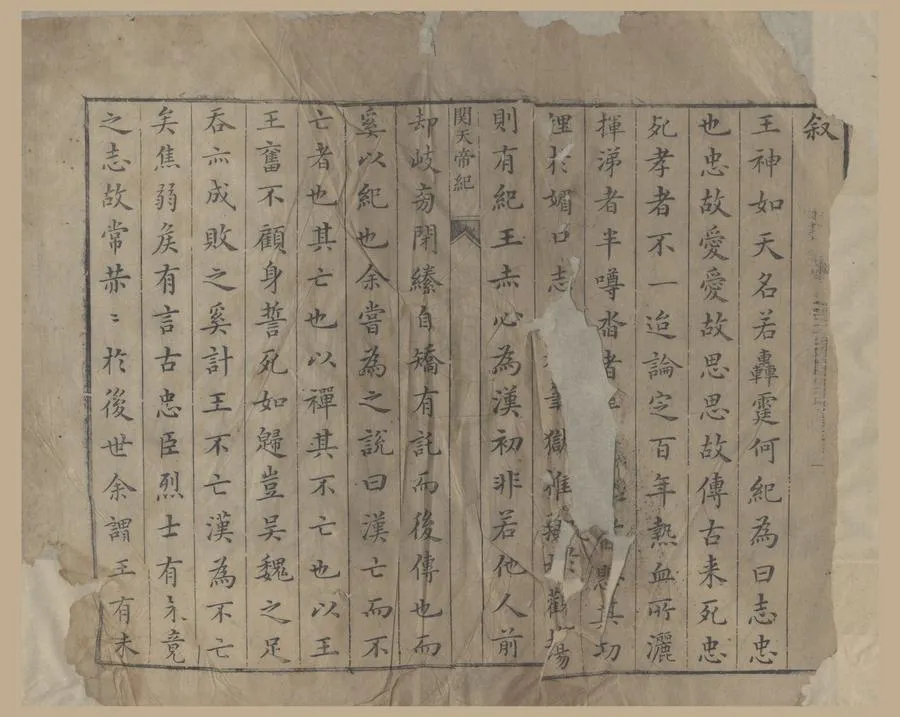 叙
王神如天名若轟霆何紀為曰志忠
也忠故愛愛故思思故傳古来死忠
死孝者不一迨論定百年熱血所灑
揮涕者半噂沓者其切
俚於媚口志獄惟勸揚
則有紀王赤心為漢初非若他人前
関天帝紀
却歧旁閉自矯有託而後傳也而
奚以紀也余嘗為之說曰漢亡而不
亡者也其亡也以禪其不亡也以王
王奮不顧身誓死如歸豈吳魏之足
吞亦成敗之奚計王不亡漢為不亡
矣焦弱矦有言古忠臣烈士有未竟
之志故常恭〻於後世余謂王有未